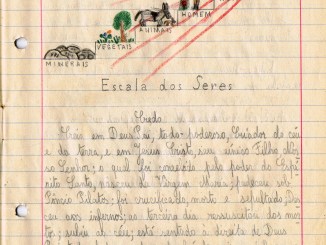 HOMEM
ANIMAIS
VEGETAIS
MINERAIS
Escala dos Seres
Credo
Creio em Deus Pai, todo poderoso, Criador do céu
e da terra, e em Jesus Cristo, seu único Filho Nos
so Senhor; o qual foi concebido pelo poder do Espí
rito Santo, nasceu de Virgem Maria; padeceu sob
Pôncio Pilatos; foi crucificado, morto e sepultado; Des
ceu aos infernos; ao terceiro dia ressuscitou dos mor
tos; subiu ao céu; está sentado à direita de Deus